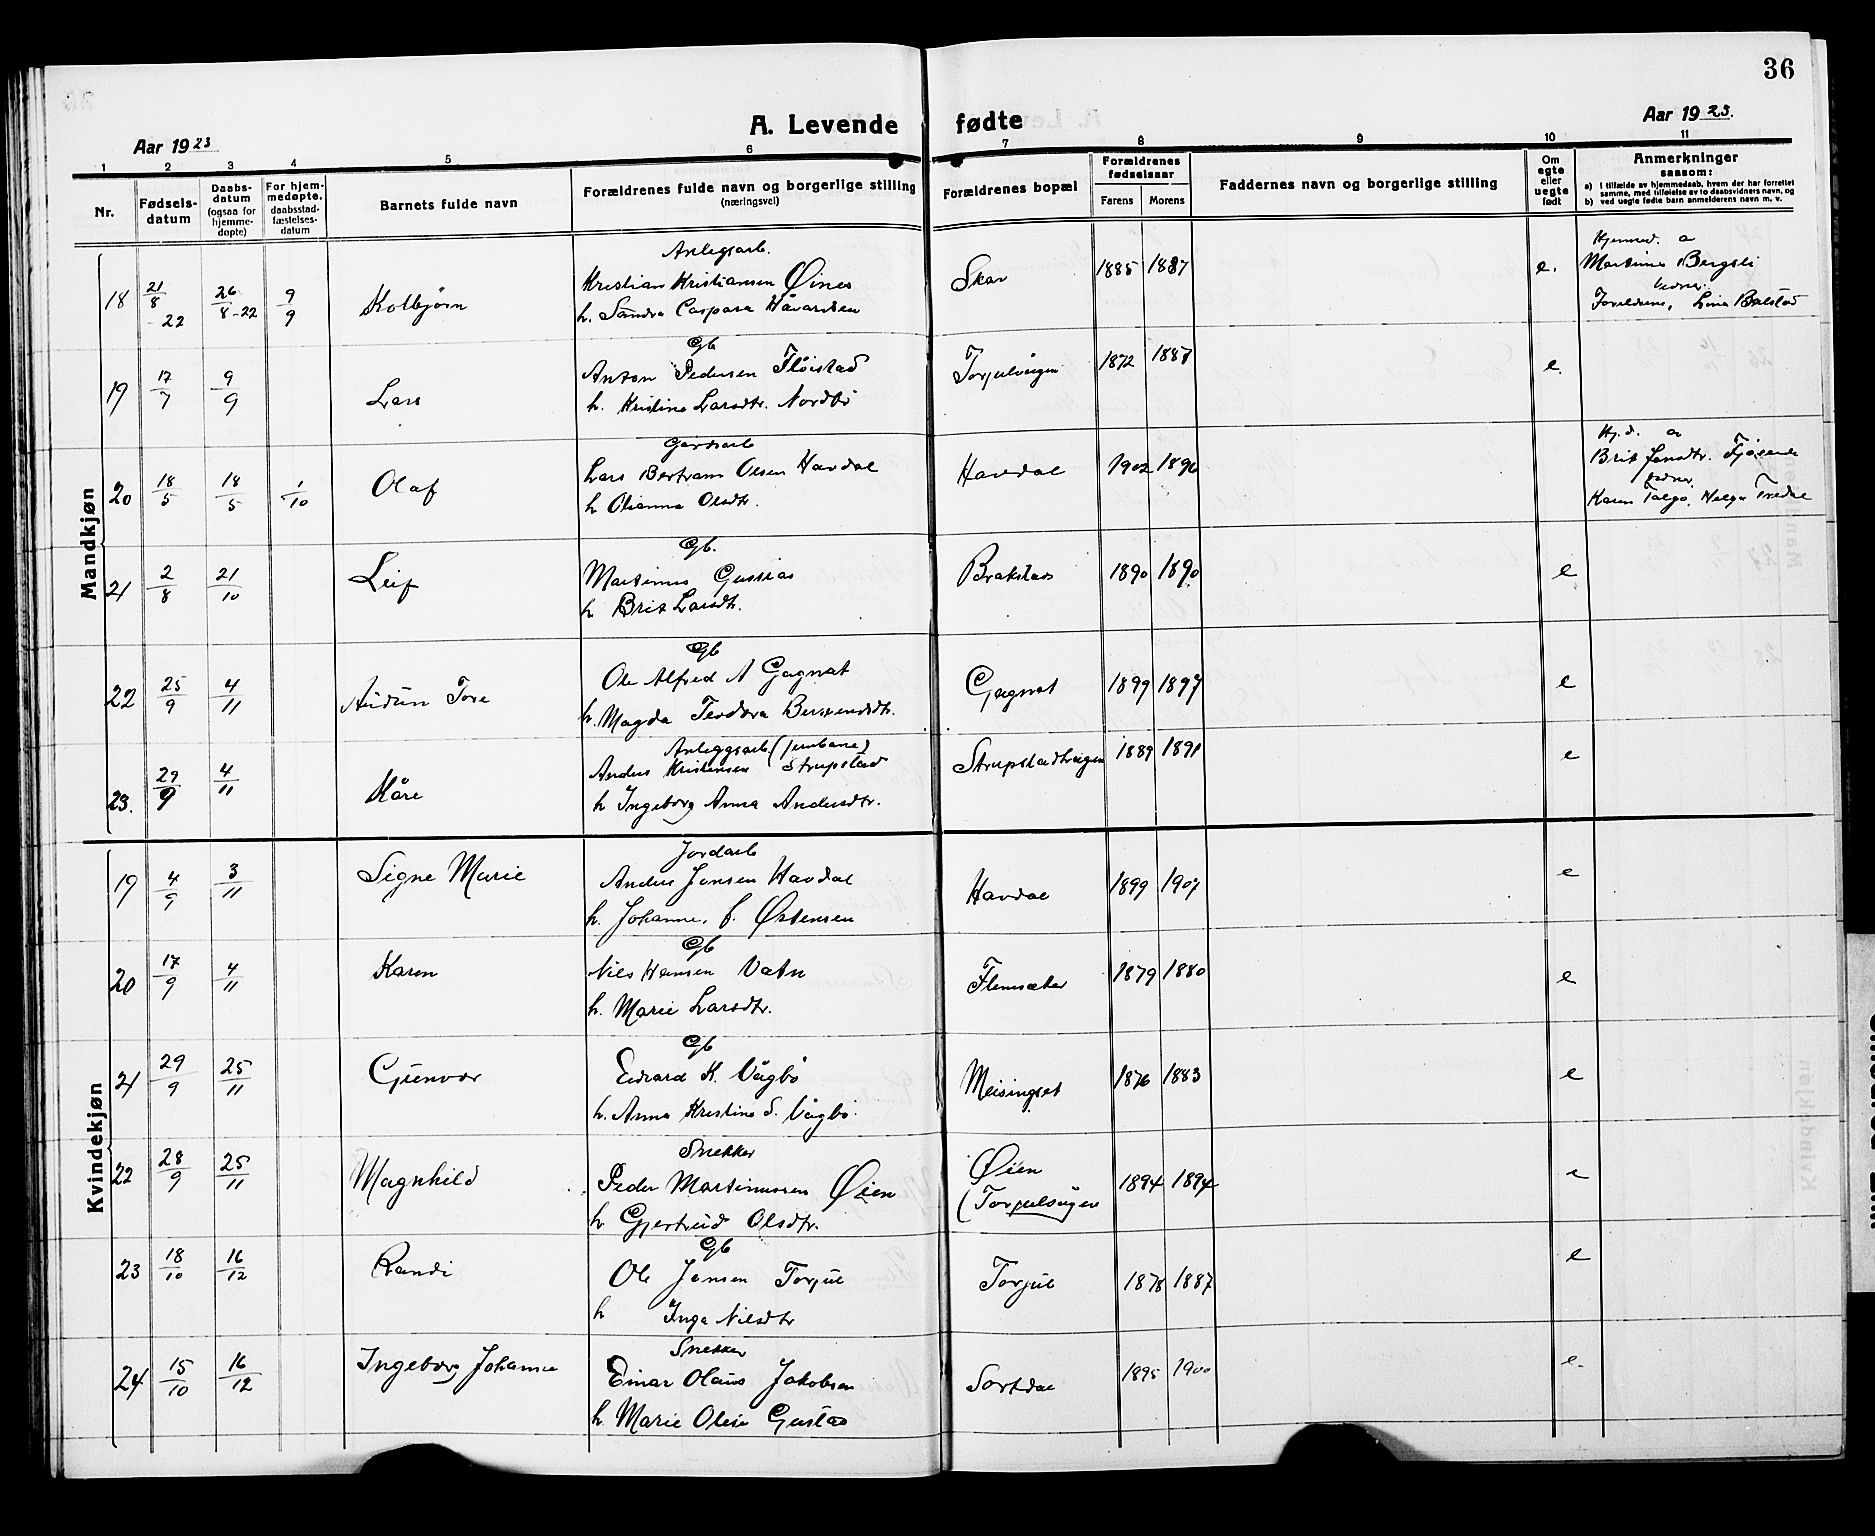 36
A. Levende fødte
Aar 1923
Aar 1923.
1 2 3 4 5 6 7 8 9 10 11
Nr.
Fødsels-
datum
Daabs-
datum
(ogsaa for
hjemme-
døpte)
For hjem-
medøpte,
daabsstad-
fæstelses-
datum
Barnets fulde navn
Forældrenes fulde navn og borgerlige stilling
(næringsvei)
Forældrenes bopæl
Forældrenes
fødselsaar
Farens Morens
Faddernes navn og borgerlige stilling
Om
egte
eller
uegte
født
Anmerkninger
saasom:
a) I tilfælde av hjemmedaab, hvem der har forrettet
samme, med tilføielse av to daabsvidners navn, og
b) ved uegte fødte barn anmelderens navn m. v.
Mandkjøn
Anlegsarb. Hjemmed. a
18 21/8 -22 26/8-22 9/9 Kolbjørn Kristian Kristiansen Øines Skar 1885 1887 e. Martinus Bergsli
h. Sandra Caspara Håvardsen Foreldrene, Lina Bolstad
Gb
19 17/7 9/9 Lars Anton Pedersen Fløistad Torjulvågen 1872 1887 e.
h. Kristine Larsdtr. Nordbø
Gardsarb Hj.d. a
20 18/5 18/5 1/10 Olaf Lars Bertram Olsen Havdal Havdal 1902 1896 Brit Jonsdtr.
h Olianna Olsdtr. Karen Talgø, Helga Tredal
Gb.
21 2/8 21/10 Leif Martinus Gussias Brakstad 1890 1890 e
h Brit Larsdtr.
Gb
22 25/9 4/11 Audun Tore Ole Alfred A Gagnat Gagnat 1899 1897 e
h. Magda Teodora Berntendtr.
Anleggsarb (jernbane)
23. 29/9 4/11 Kåre Anders Kristensen Strupstad Strupstadvågen 1889 1891 e
h Ingeborg Anna Andersdtr.
Kvindekjøn
Jordarb
19 4/9 3/11 Signe Marie Anders Jonsen Havdal Havdal 1899 1907 e
h. Johanne, f. Østensen
Gb
20 17/9 4/11 Karen Nils Hansen Vatn Flemsæter 1879 1880 e
h. Marie Larsdtr.
Gb
21 29/9 25/11 Gunvor Edvard K. Vågbø Meisingset 1876 1883 e
h. Anna Kristine S. Vågbø.
Snekker
22 28/9 25/11 Magnhild Peder Martinussen Øien Øien 1894 1894 e
h Gjertrud Olsdtr. (Torjulvågen
Gb
23 18/10 16/12 Randi Ole Jonsen Torjul Torjul 1878 1887 e
h Inga Nilsdtr
Snekker
24 15/10 16/12 Ingeborg Johanne Einar Olaus Jakobsen Sortdal 1895 1900 e.
h. Marie Oline Gustad